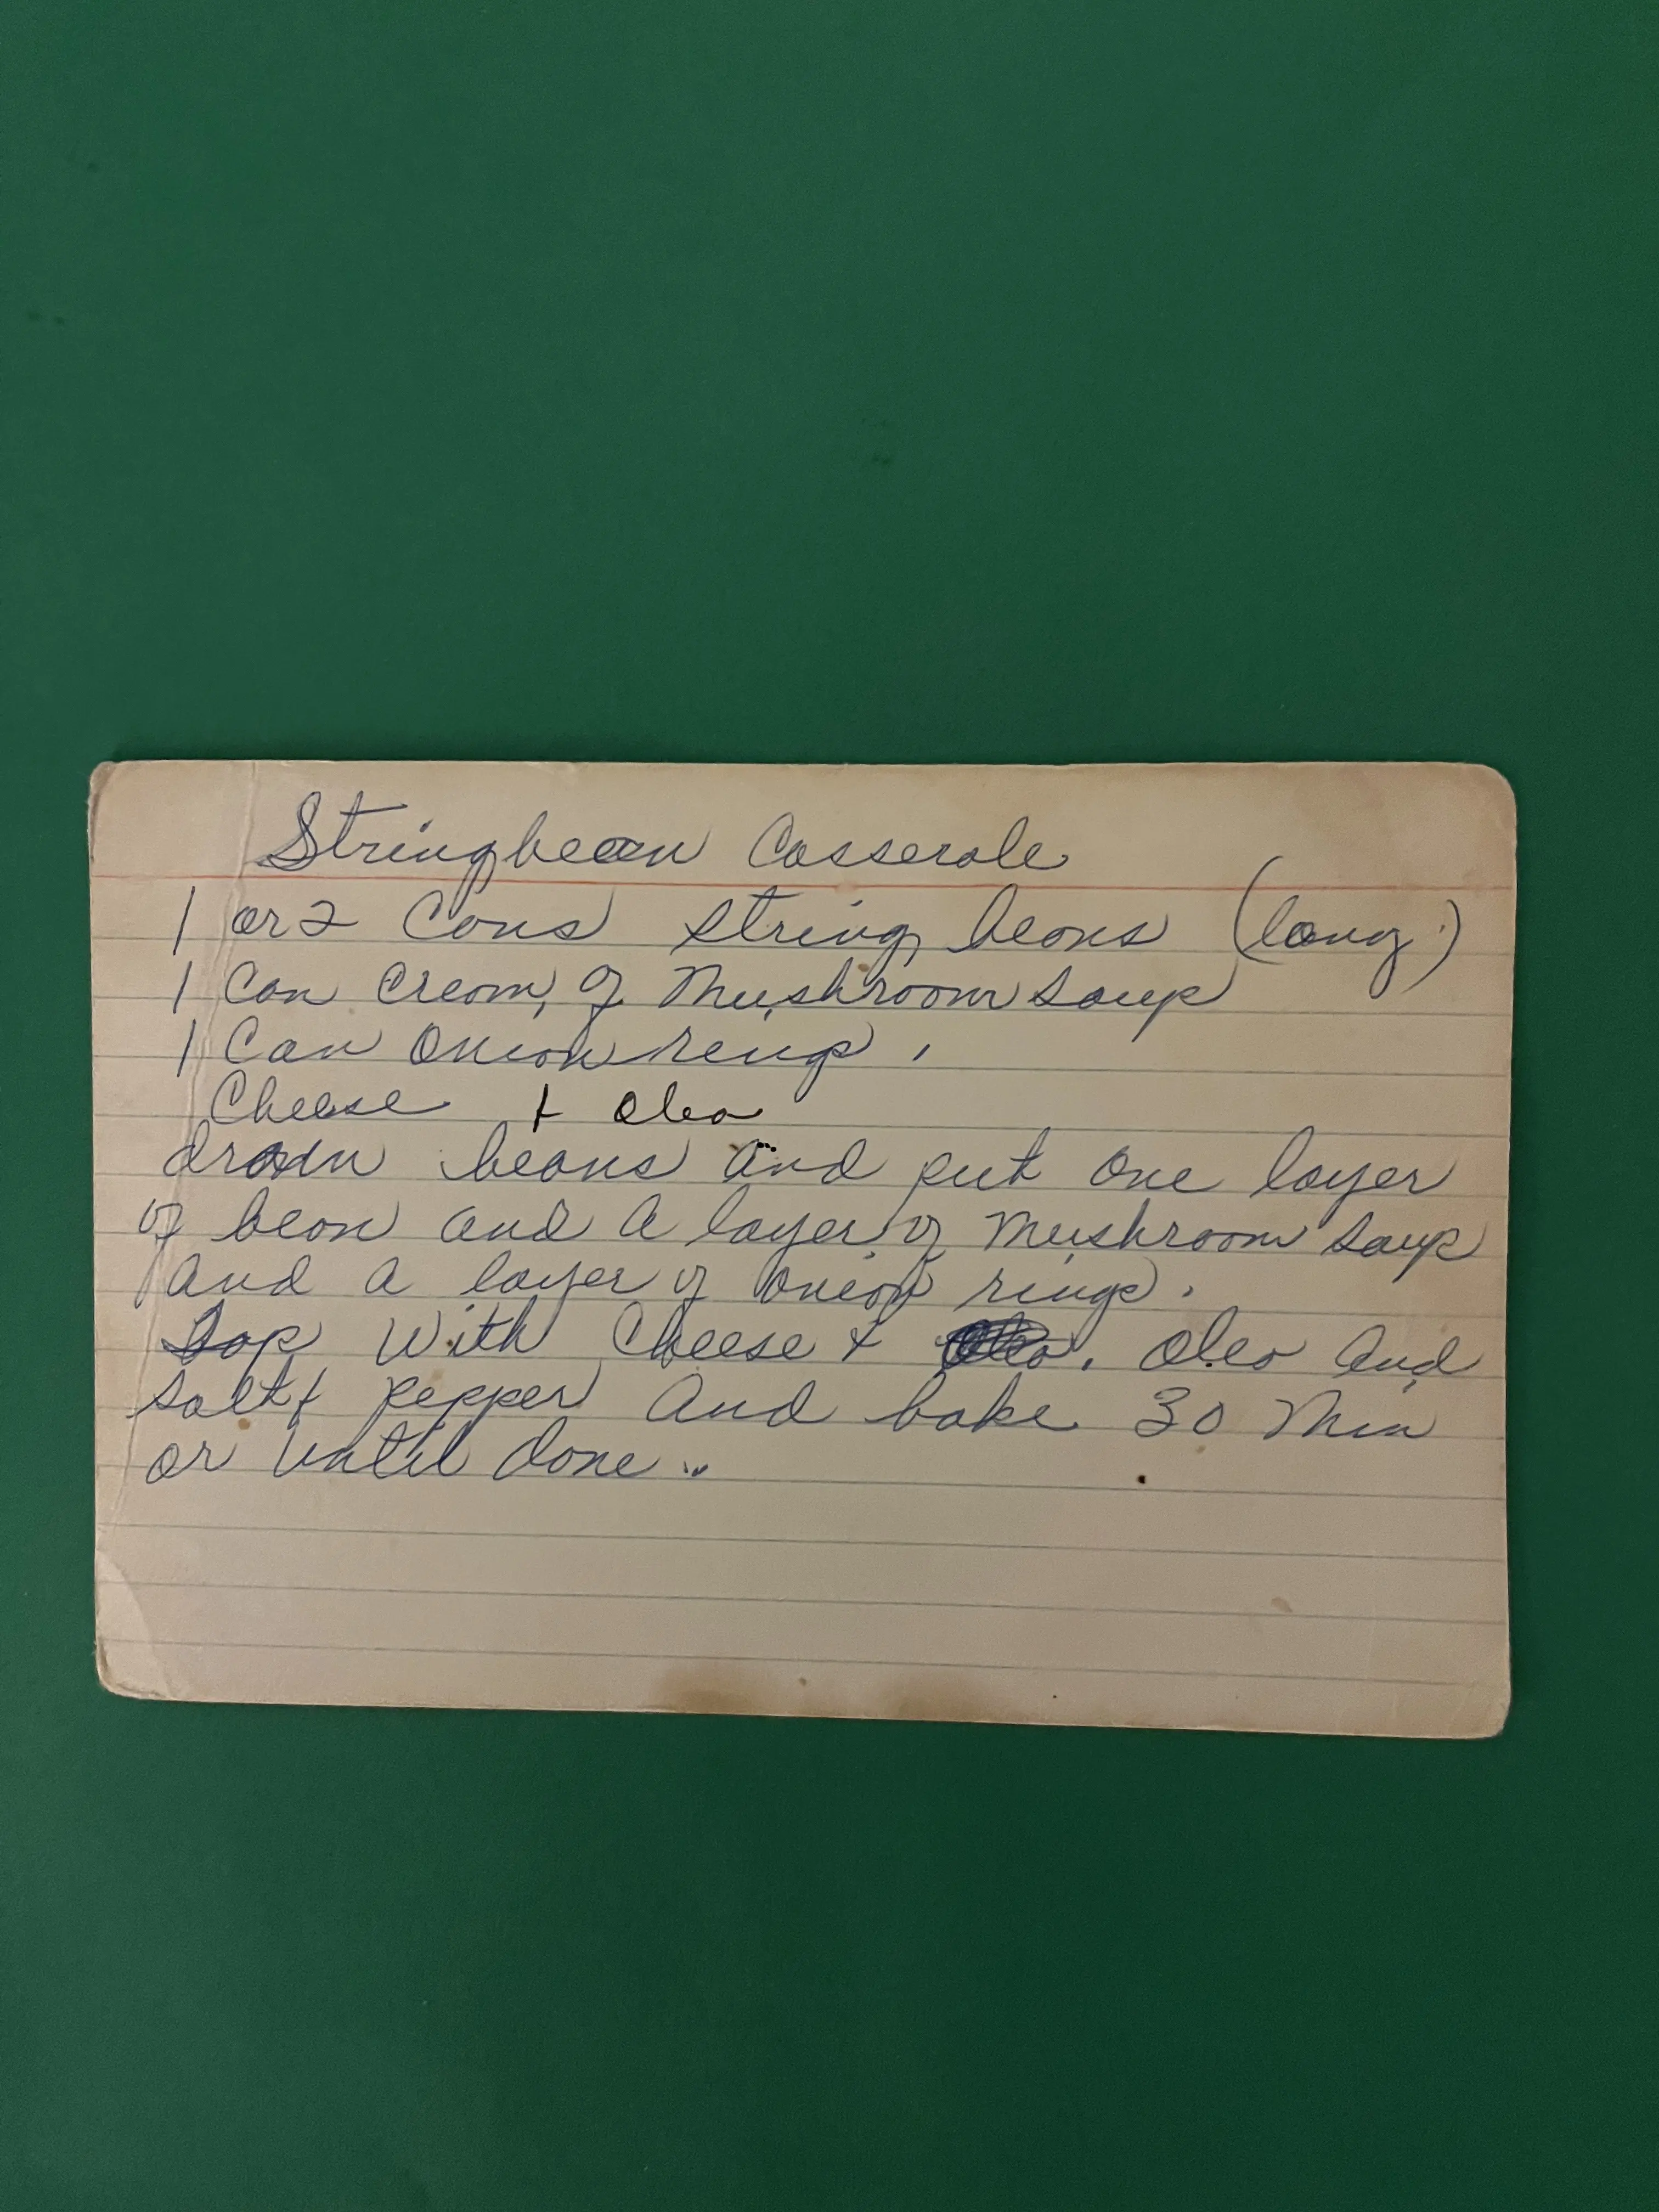 Stringbean Casserole
1 or 2 Cans string beans (long)
1 Can Cream of Mushroom Soup
1 Can Onion rings.
Cheese + Oleo
drain beans and put one layer
of bean and a layer of Mushroom Soup
and a layer of onion rings.
Top with Cheese + Oleo and
salt + pepper and bake 30 Min
or until done..